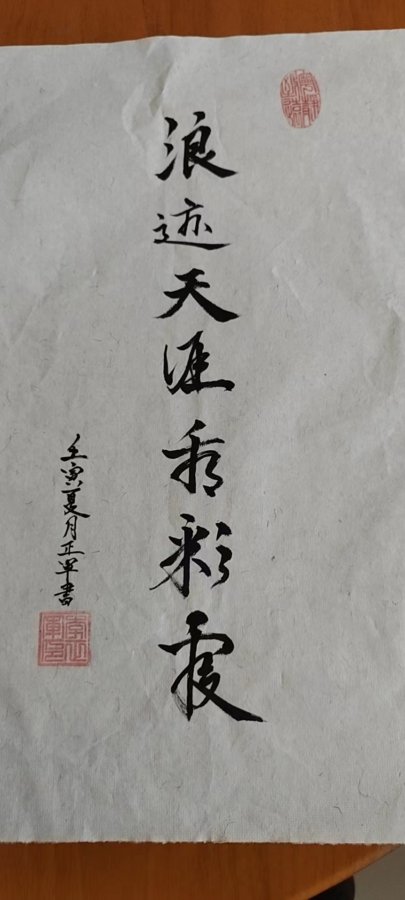 浪迹天涯秀彩霞
壬寅夏月正军书